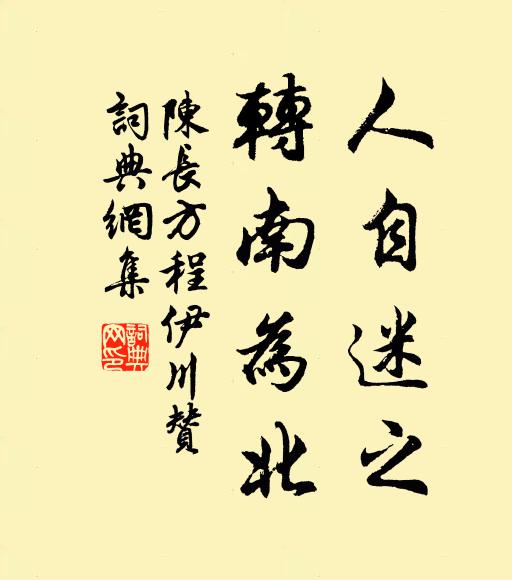 人自迷之
轉南為北
陳長方程伊川贊
詞典網集
詞典網印